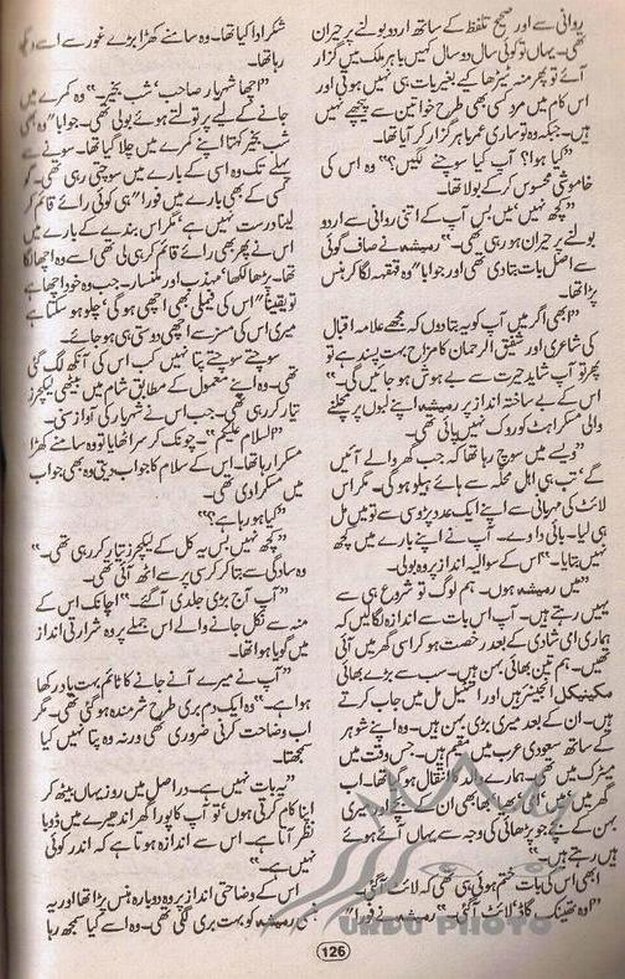 روانی سے اور صحیح تلفظ کے ساتھ اردو بولنے پر حیران
تھی۔ یہاں تو کوئی سال دو سال کہیں باہر ملک میں گزار
آئے تو پھر منہ ٹیڑھا کیے بغیر بات ہی نہیں ہوتی اور
اس کام میں مرد کسی بھی طرح خواتین سے پیچھے نہیں
ہیں۔ جبکہ وہ تو ساری عمر باہر گزار کر آیا تھا۔
"کیا ہوا؟ آپ کیا سوچنے لگیں؟" وہ اس کی
خاموشی محسوس کر کے بولا تھا۔
"کچھ نہیں، میں بس آپ کے اتنی روانی سے اردو
بولنے پر حیران ہو رہی تھی۔" رمیشہ نے صاف گوئی
سے اصل بات بتا دی تھی اور جوابا" وہ قہقہہ لگا کر ہنس
پڑا تھا۔
"ابھی اگر میں آپ کو یہ بتا دوں کہ مجھے علامہ اقبال
کی شاعری اور شفیق الرحمان کا مزاح بہت پسند ہے تو
پھر تو آپ شاید حیرت سے بے ہوش ہو جائیں گی۔"
اس کے بے ساختہ انداز پر رمیشہ اپنے لبوں پر مچلنے
والی مسکراہٹ کو روک نہیں پائی تھی۔
"ویسے میں سوچ رہا تھا کہ جب گھر والے آئیں
گے، تب ہی اہل محلہ سے ہائے ہیلو ہو گی۔ مگر اس
لائٹ کی مہربانی سے اپنے ایک عدد پڑوسی سے تو میں مل
ہی لیا۔ بائی دا وے۔ آپ نے اپنے بارے میں کچھ
نہیں بتایا۔" اس کے سوالیہ انداز پر وہ بولی۔
"میں رمیشہ ہوں۔ ہم لوگ تو شروع ہی سے
یہیں رہتے ہیں۔ آپ اس بات سے اندازہ لگالیں کہ
ہماری امی شادی کے بعد رخصت ہو کر اسی گھر میں آئی
تھیں۔ ہم تین بھائی بہن ہیں۔ سب سے بڑے بھائی
مکینیکل انجینئر ہیں اور اسٹیل مل میں جاب کرتے
ہیں۔ ان کے بعد میری بڑی بہن ہیں۔ وہ اپنے شوہر
کے ساتھ سعودی عرب میں مقیم ہیں۔ جس وقت میں
میٹرک میں تھی۔ ہمارے والد کا انتقال ہو گیا تھا۔ اب
گھر میں، میں، امی، بھیا، بھابھی ان کے بچے اور میری
بہن کے بچے جو پڑھائی کی وجہ سے یہاں آئے ہوئے
ہیں رہتے ہیں۔"
ابھی اس کی بات ختم ہوئی ہی تھی کہ لائٹ آگئی۔
"اوہ تھینک گاڈ، لائٹ آگئی۔" رمیشہ نے فورا"
شکر ادا کیا تھا۔ وہ سامنے کھڑا بڑے غور سے اسے دیکھ
رہا تھا۔
"اچھا شہریار صاحب، شب بخیر۔" وہ کمرے میں
جانے کے لیے پر تولتے ہوئے بولی تھی۔ جوابا" وہ بھی
شب بخیر کہتا اپنے کمرے میں چلا گیا تھا۔ سونے سے
پہلے تک وہ اسی کے بارے میں سوچتی رہی تھی۔ گو
کسی کے بھی بارے میں فورا" ہی کوئی رائے قائم کر
لینا درست نہیں ہے، مگر اس بندے کے بارے میں
اس نے پھر بھی رائے قائم کر ہی لی تھی اسے وہ اچھا لگا
تھا۔ پڑھا لکھا، مہذب اور ملنسار۔ جب وہ خود اچھا ہے
تو یقینا" اس کی فیملی بھی اچھی ہو گی، چلو ہو سکتا ہے
میری اس کی مسز سے اچھی دوستی ہی ہو جائے۔
سوچتے سوچتے پتا نہیں کب اس کی آنکھ لگ گئی
تھی۔ وہ اپنے معمول کے مطابق شام میں بیٹھی لیکچرز
تیار کر رہی تھی۔ جب اس نے شہریار کی آواز سنی۔
"السلام علیکم"۔ چونک کر سر اٹھایا تو وہ سامنے کھڑا
مسکرا رہا تھا۔ اس کے سلام کا جواب دیتی وہ بھی جواب
میں مسکرا دی تھی۔
"کیا ہو رہا ہے؟"
"کچھ نہیں بس یہ کل کے لیکچرز تیار کر رہی تھی۔"
وہ سادگی سے بتا کر کرسی پر سے اٹھ آئی تھی۔
"آپ آج بڑی جلدی آگئے۔" اچانک اس کے
منہ سے نکل جانے والے اس جملے پر وہ شرارتی انداز
میں گویا ہوا تھا۔
"آپ نے میرے آنے جانے کا ٹائم بہت یاد رکھا
ہوا ہے۔" وہ ایک دم بری طرح شرمندہ ہو گئی تھی۔ مگر
اب وضاحت کرنی ضروری تھی ورنہ وہ پتا نہیں کیا
سمجھتا۔
"یہ بات نہیں ہے۔ دراصل میں روز یہاں بیٹھ کر
اپنا کام کرتی ہوں، تو آپ کا پورا گھر اندھیرے میں ڈوبا
نظر آتا ہے۔ اس سے اندازہ ہوتا ہے کہ اندر کوئی
نہیں ہے۔"
اس کے وضاحتی انداز پر وہ دوبارہ ہنس پڑا تھا اور یہ
ہنسی رمیشہ کو بہت بری لگی تھی۔ وہ اسے کیا سمجھ رہا
126
URDU PHOTO